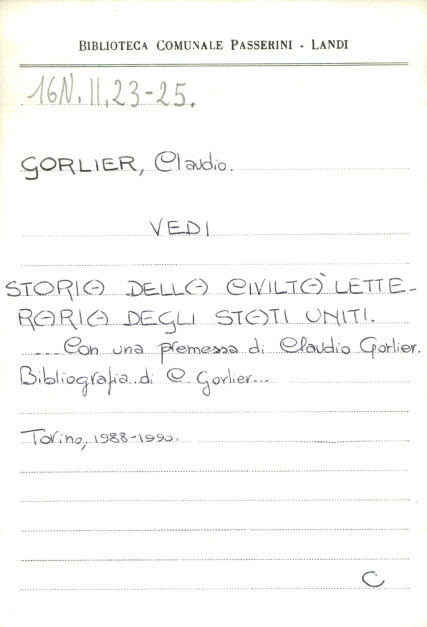 BIBLIOTECA COMUNALE PASSERINI - LANDI
16N.II.23-25.
GORLIER, Claudio.
VEDI
STORIA DELLA CIVILTA' LETTE-
RARIA DEGLI STATI UNITI.
... Con una premessa di Claudio Gorlier.
Bibliografia di C. Gorlier...
Torino, 1988-1990.
C